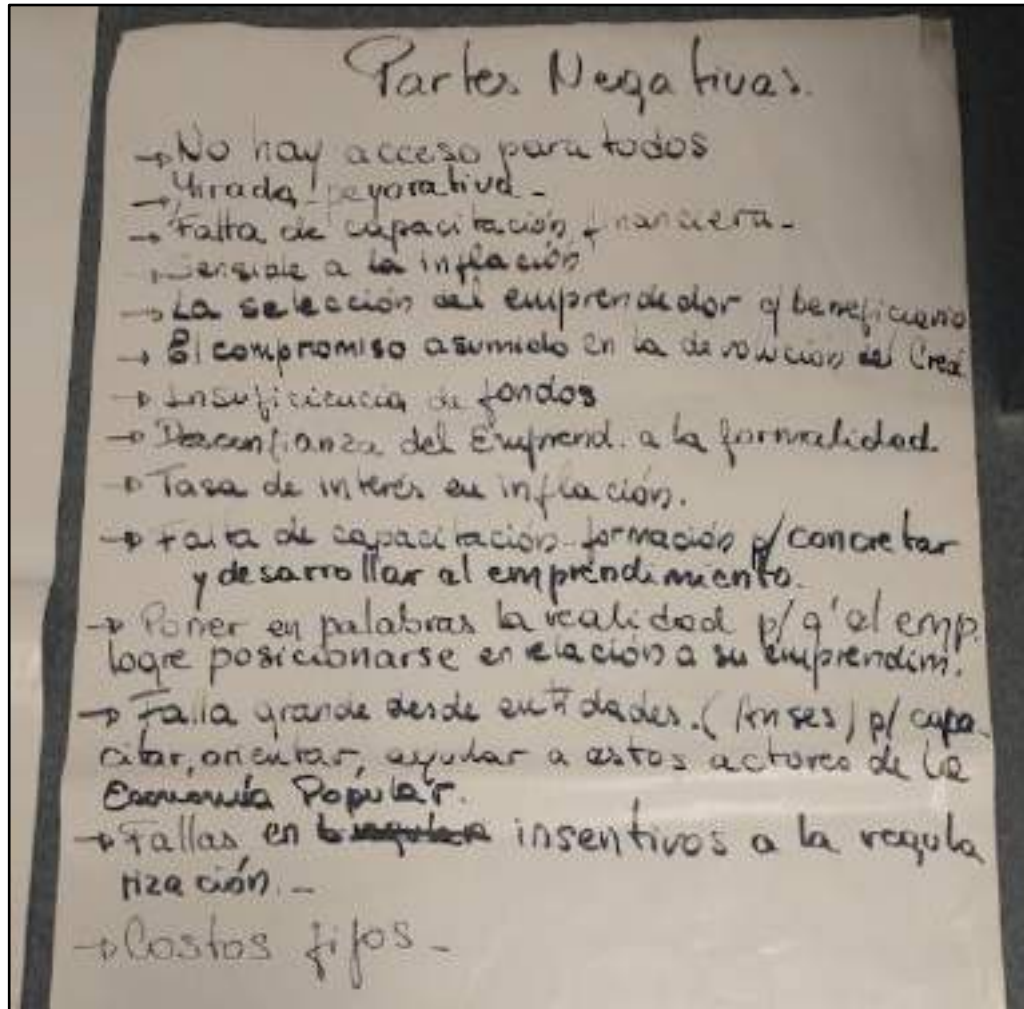 Partes Negativas.
→ No hay acceso para todos
→ Mirada peyorativa -
→ Falta de capacitación financiera -
→ Sensible a la inflación
→ La selección del emprendedor y beneficiario
→ El compromiso asumido en la devolución del Cred
→ Insuficiencia de fondos
→ Desconfianza del Emprend. a la formalidad.
→ Tasa de interés en inflación.
→ Falta de capacitación - formación p/ concretar
y desarrollar el emprendimiento.
→ Poner en palabras la realidad p/ q' el emp.
logre posicionarse en relación a su emprendim.
→ Falla grande desde entidades. (Anses) p/ capa-
citar, orientar, ayudar a estos actores de la
Economía Popular.
→ Fallas en insentivos a la regula
rización. -
→ Costos fijos -